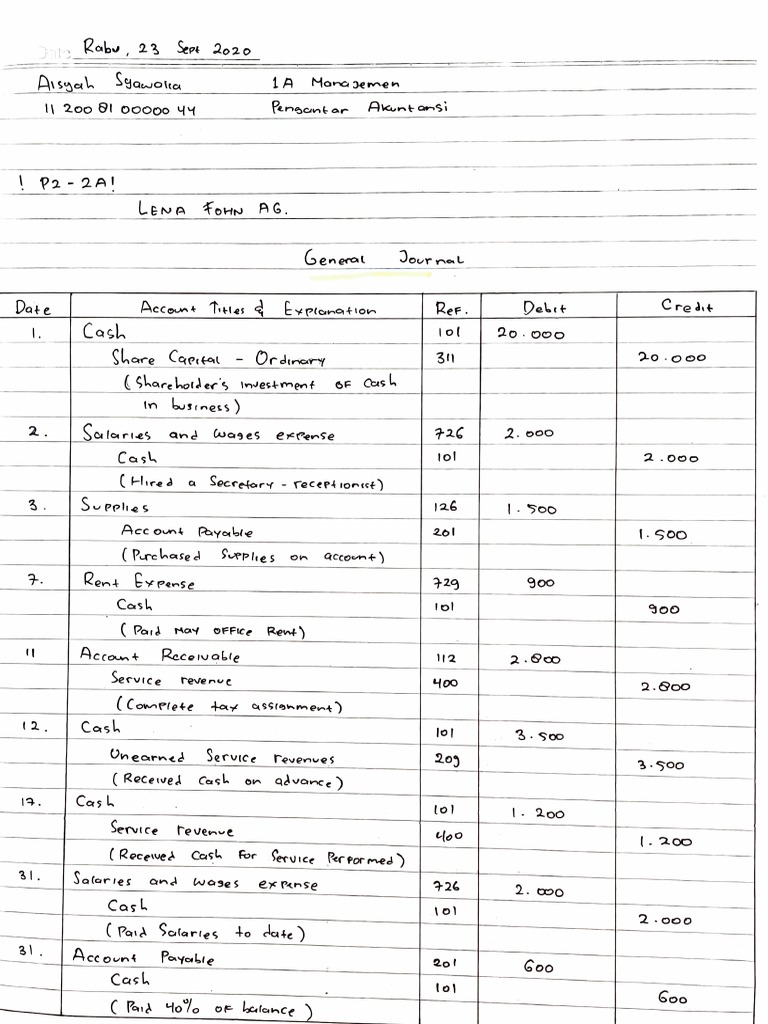 Date Rabu, 23 Sept 2020
Aisyah Syawolia 1A Manajemen
11 200 81 00000 44 Pengantar Akuntansi
! P2 - 2A !
LENA FOHN AG.
General Journal
Date Account Titles & Explanation Ref. Debit Credit
1. Cash 101 20.000
Share Capital - Ordinary 311 20.000
(Shareholder's investment of cash
in business)
2. Salaries and wages expense 726 2.000
Cash 101 2.000
(Hired a Secretary - receptionist)
3. Supplies 126 1.500
Account Payable 201 1.500
(Purchased Supplies on account)
7. Rent Expense 729 900
Cash 101 900
(Paid May Office Rent)
11 Account Receivable 112 2.800
Service revenue 400 2.800
(Complete tax assignment)
12. Cash 101 3.500
Unearned Service revenues 209 3.500
(Received Cash on advance)
17. Cash 101 1.200
Service revenue 400 1.200
(Received Cash For Service Performed)
31. Salaries and wages expense 726 2.000
Cash 101 2.000
(Paid Salaries to date)
31. Account Payable 201 600
Cash 101 600
(Paid 40% of balance)